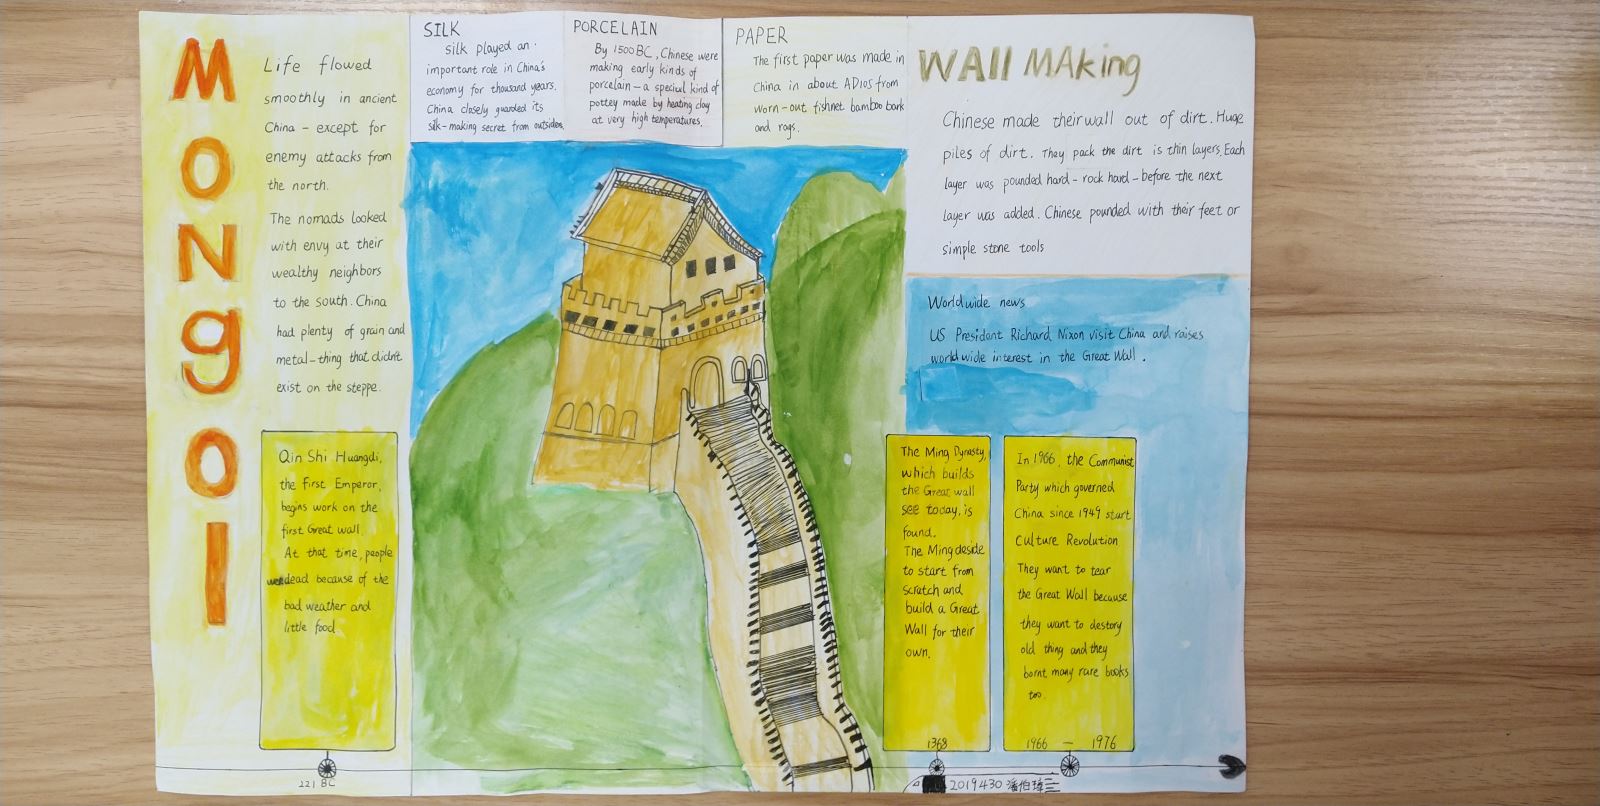 Mongol
Life flowed
smoothly in ancient
China - except for
enemy attacks from
the north.
The nomads looked
with envy at their
wealthy neighbors
to the south. China
had plenty of grain and
metal-thing that didn't
exist on the steppe.
Qin Shi Huangdi,
the first Emperor,
begins work on the
first Great wall.
At that time, people
dead because of the
bad weather and
little food
221 BC
SILK
silk played an
important role in China's
economy for thousand years.
China closely guarded its
silk-making secret from outsiders.
PORCELAIN
By 1500 BC, Chinese were
making early kinds of
porcelain - a special kind of
pottey made by heating clay
at very high temperatures.
PAPER
The first paper was made in
China in about AD105 from
worn-out fishnet bamboo bark
and rags.
WAll MAking
Chinese made their wall out of dirt. Huge
piles of dirt. They pack the dirt is thin layers. Each
layer was pounded hard - rock hard - before the next
layer was added. Chinese pounded with their feet or
simple stone tools
Worldwide news
US President Richard Nixon visit China and raises
worldwide interest in the Great Wall.
The Ming Dynasty,
which builds
the Great wall
see today, is
found.
The Ming deside
to start from
scratch and
build a Great
Wall for their
own.
1368
In 1966, the Communist
Party which governed
China since 1949 start
Culture Revolution
They want to tear
the Great Wall because
they want to destory
old thing and they
bornt many rare books
too.
1966 — 1976
2019430 潘伯璋